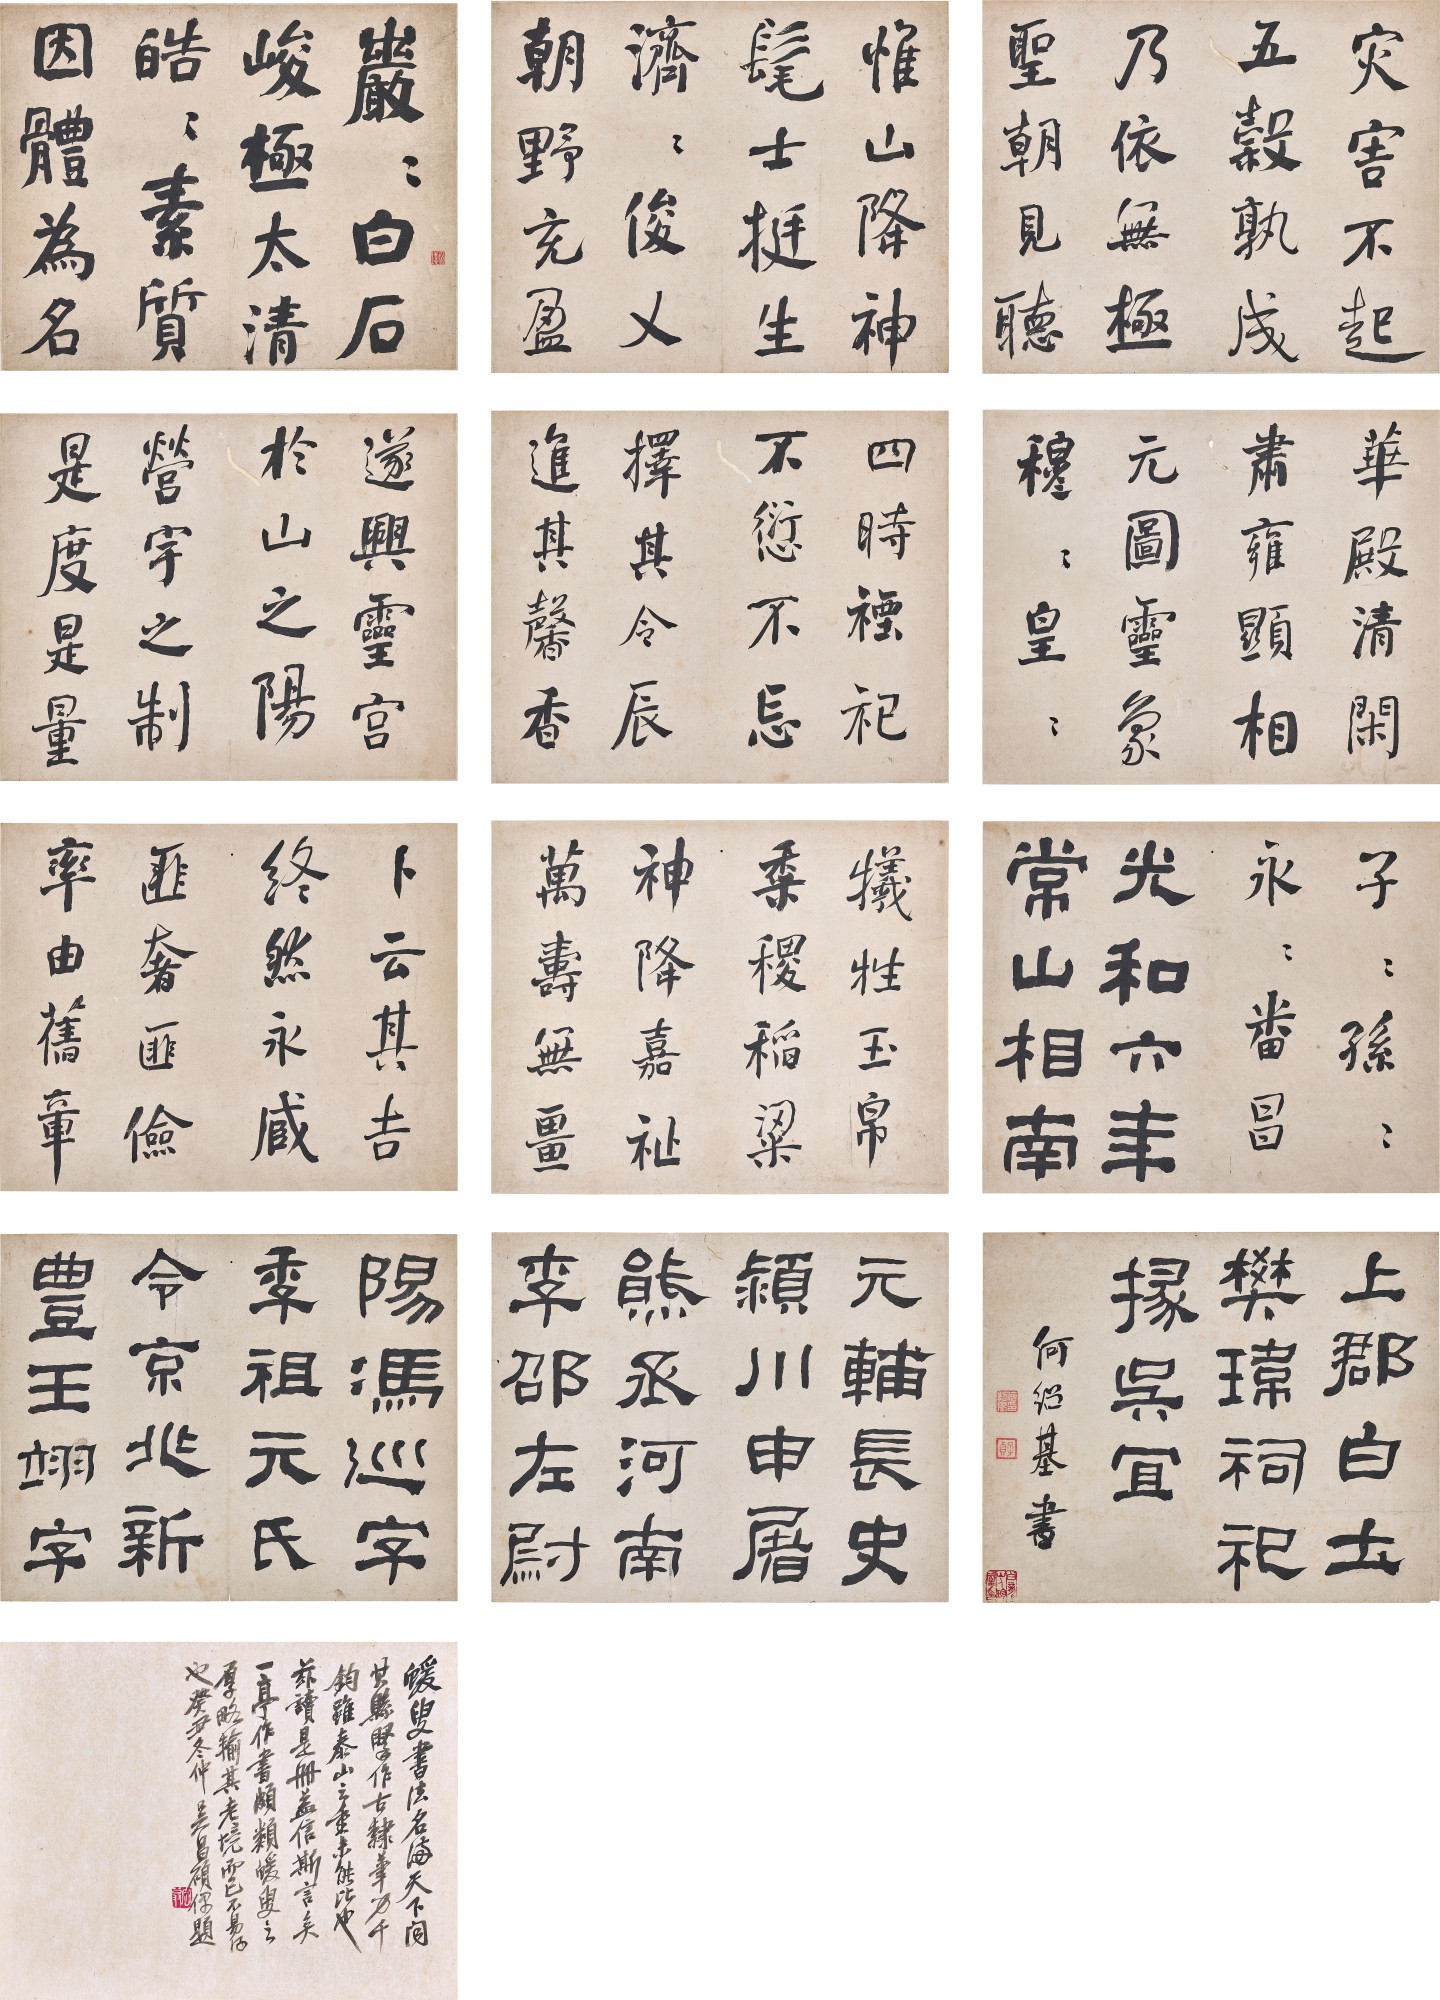 巖〻白石
峻極太清
皓〻素質
因體為名
惟山降神
髦士挺生
濟〻俊乂
朝野充盈
灾害不起
五穀孰成
乃依無極
聖朝見聽
遂興靈宮
於山之陽
營宇之制
是度是量
四時禋祀
不愆不忘
擇其令辰
進其馨香
華殿清閑
肅雍顯相
元圖靈象
穆〻皇〻
卜云其吉
終然永臧
匪奢匪儉
率由舊章
犧牲玉帛
黍稷稻粱
神降嘉祉
萬壽無畺
子〻孫〻
永〻番昌
光和六年
常山相南
陽馮巡字
季祖元氏
令京兆新
豐王翊字
元輔長史
潁川申屠
熊丞河南
李邵左尉
上郡白土
樊瑋祠祀
掾吳宜
何紹基書
蝯叟書法名滿天下聞
其縣臂作古隸筆力千
鈞雖泰山之重未能比也
茲讀是冊益信斯言矣
一亭作書頗類蝯叟之
厚略輸其老境而已不易得
也癸丑冬仲 吳昌碩題